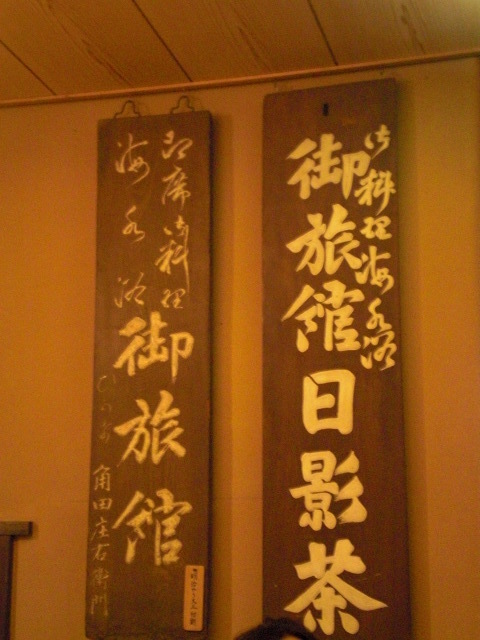 御料理海水浴
御旅館日影茶
即席御料理
海水浴
御旅館
角田庄右衛門